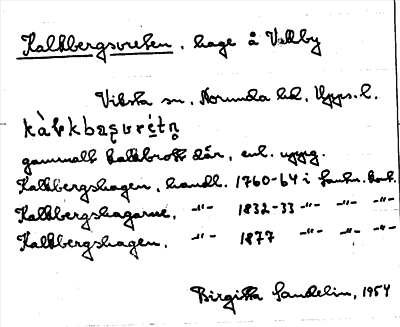 Kalkbergsvreten, hage å Vallby
Viksta sn, Norunda hd, Upps. l.
kàlkbæsvrétn̥
gammalt kalkbrott där, enl. uppg.
Kalkbergshagen, handl. 1760-64 i Lantm. kont.
Kalkbergshagarne, -"- 1832-33 -"- -"- -"-
Kalkbergshagen, -"- 1877 -"- -"- -"-
Birgitta Sandelin, 1954